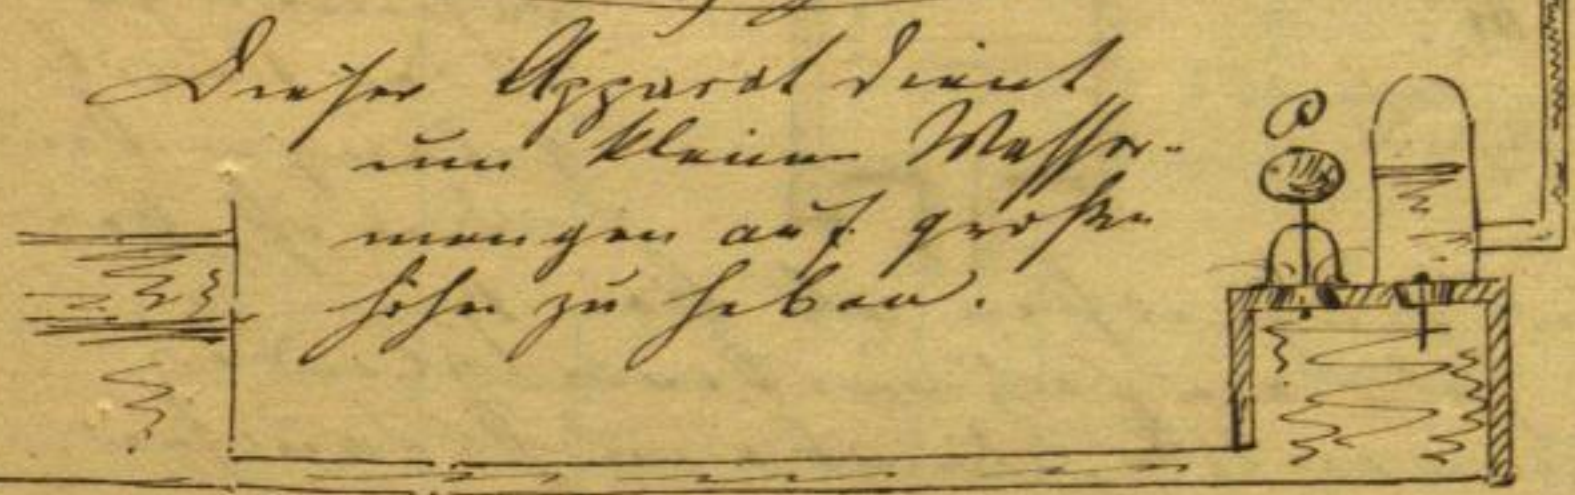 Dieser Apparat dient
um kleine Wasser-
mengen auf große
Höhe zu heben.